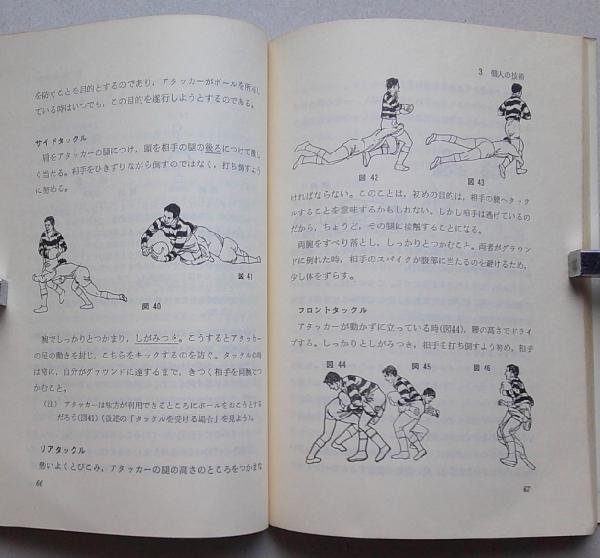 を防ぐことを目的とするのであり，アタッカーがボールを所有し
ている時はいつでも，この目的を遂行しようとするのである。
サイドタックル
肩をアタッカーの腿につけ，頭を相手の腿の後ろにつけて激し
く当たる。相手をひきずりながら倒すのではなく，打ち倒すよう
に努める。
図 41
図 40
腕でしっかりとつかまり，しがみつく。こうするとアタッカー
の足の動きを封じ，こちらをキックするのを防ぐ。タックルの時
は常に，自分がグラウンドに達するまで，きつく相手を両腕でつ
かむこと。
（注） アタッカーは味方が利用できるところにボールをおこうとする
だろう（図41）（後述の「タックルを受ける場合」を見よう）。
リアタックル
勢いよくとびこみ，アタッカーの腿の高さのところをつかまな
66
3 個人の技術
図 42
図 43
ければならない。このことは，初めの目的は，相手の腰へタック
ルすることを意味するかもしれない。しかし相手は逃げているの
だから，ちょうど，その腿に接触することになる。
両腕をすべり落とし，しっかりとつかむこと。両者がグラウン
ドに倒れた時，相手のスパイクが腹部に当たるのを避けるため，
少し体をずらす。
フロントタックル
アタッカーが動かずに立っている時（図44），腰の高さでドライ
ブする。しっかりとしがみつき，相手を打ち倒すよう努め，相手
図 44
図 45
図 46
67